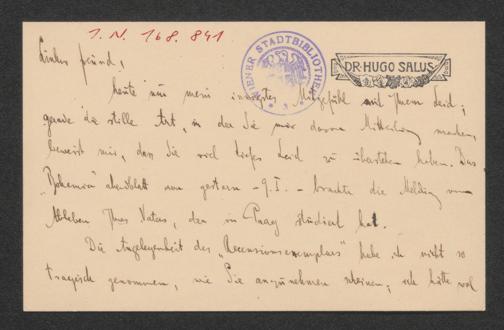 I. N. 168.841
WIENER STADTBIBLIOTHEK
DR. HUGO SALUS
Lieber Freund,
heute nur mein innigstes Mitgefühl mit Ihrem Leid;
gerade die stille Art, in der Sie mir davon Mitteilung machen,
beweist mir, dass Sie viel tiefes Leid zu überstehen haben. Das
„Bohemia" abendblatt von gestern - 9. I. - brachte die Meldung vom
Ableben Ihres Vaters, der in Prag studiert hat.
Die Angelegenheit des „Recensionsexemplars" habe ich nicht so
tragisch genommen, wie Sie anzunehmen scheinen; ich hätte wol